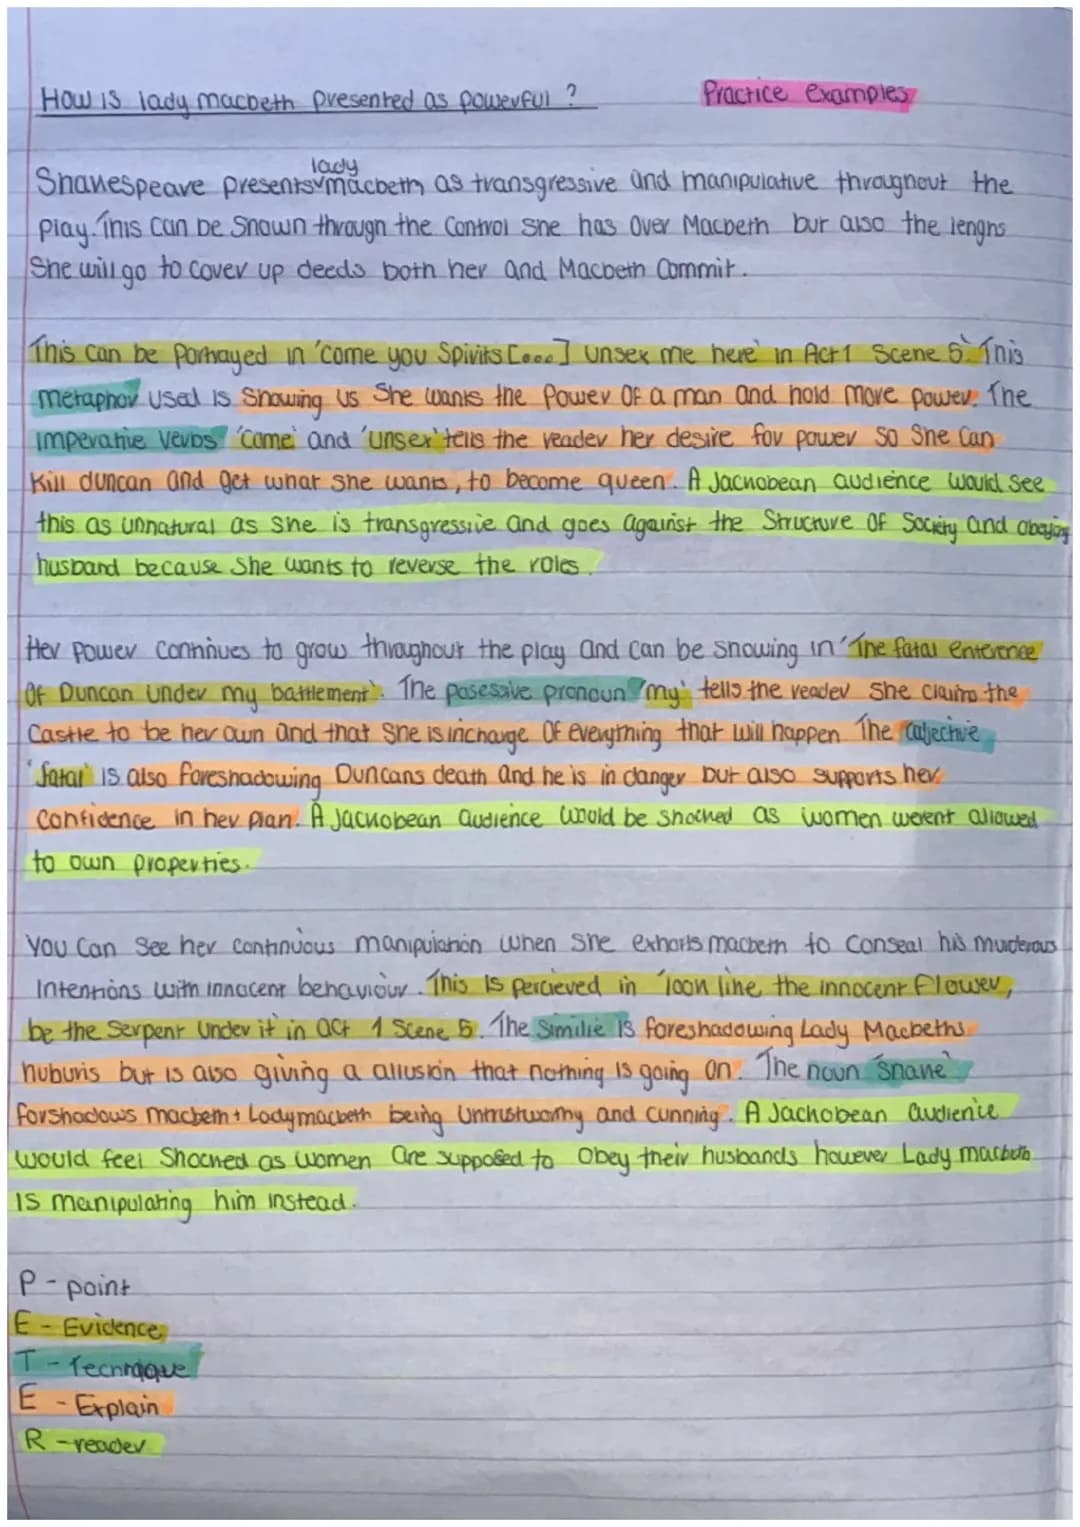 How is lady macbeth presented as powerful ?
Practice examples
lady
Shakespeare presents macbeth as transgressive and manipulative throughout the
play. This can be shown through the control she has over Macbeth but also the lenghs
She will go to cover up deeds both her and Macbeth commit.
This can be portrayed in 'come you Spirits [...] unsex me here' in Act 1 Scene 5. This
metaphor used is showing us She wants the power of a man and hold more power. The
imperative verbs 'come' and 'unsex' tells the reader her desire for power so she can
kill duncan and get what she wants, to become queen. A Jachobean audience would see
this as unnatural as she is transgressive and goes against the structure of society and obeying
husband because she wants to reverse the roles.
Her power continues to grow throughout the play and can be showing in 'The fatal enterence
of Duncan under my battlement'. The posessive pronoun 'my' tells the reader she claims the
castle to be her own and that she is incharge of everything that will happen The adjective
'fatal' is also foreshadowing Duncans death and he is in danger but also supports her
confidence in her plan. A Jackobean audience would be shocked as women werent allowed
to own properties.
You can see her continuous manipulation when she exhorts macbeth to conseal his murderous
intentions with innocent behaviour. This is percieved in 'look like the innocent flower,
be the serpent under it' in act 1 scene 5. The similie is foreshadowing Lady Macbeths
huburis but is also giving a allusion that nothing is going on. The noun 'snake'
forshadows macbeth + Lady macbeth being untrustworthy and cunning. A Jachobean audience
would feel shocked as women are supposed to obey their husbands however Lady macbeth
is manipulating him instead.
P - point
E - Evidence
T - Technique
E - Explain
R - reader